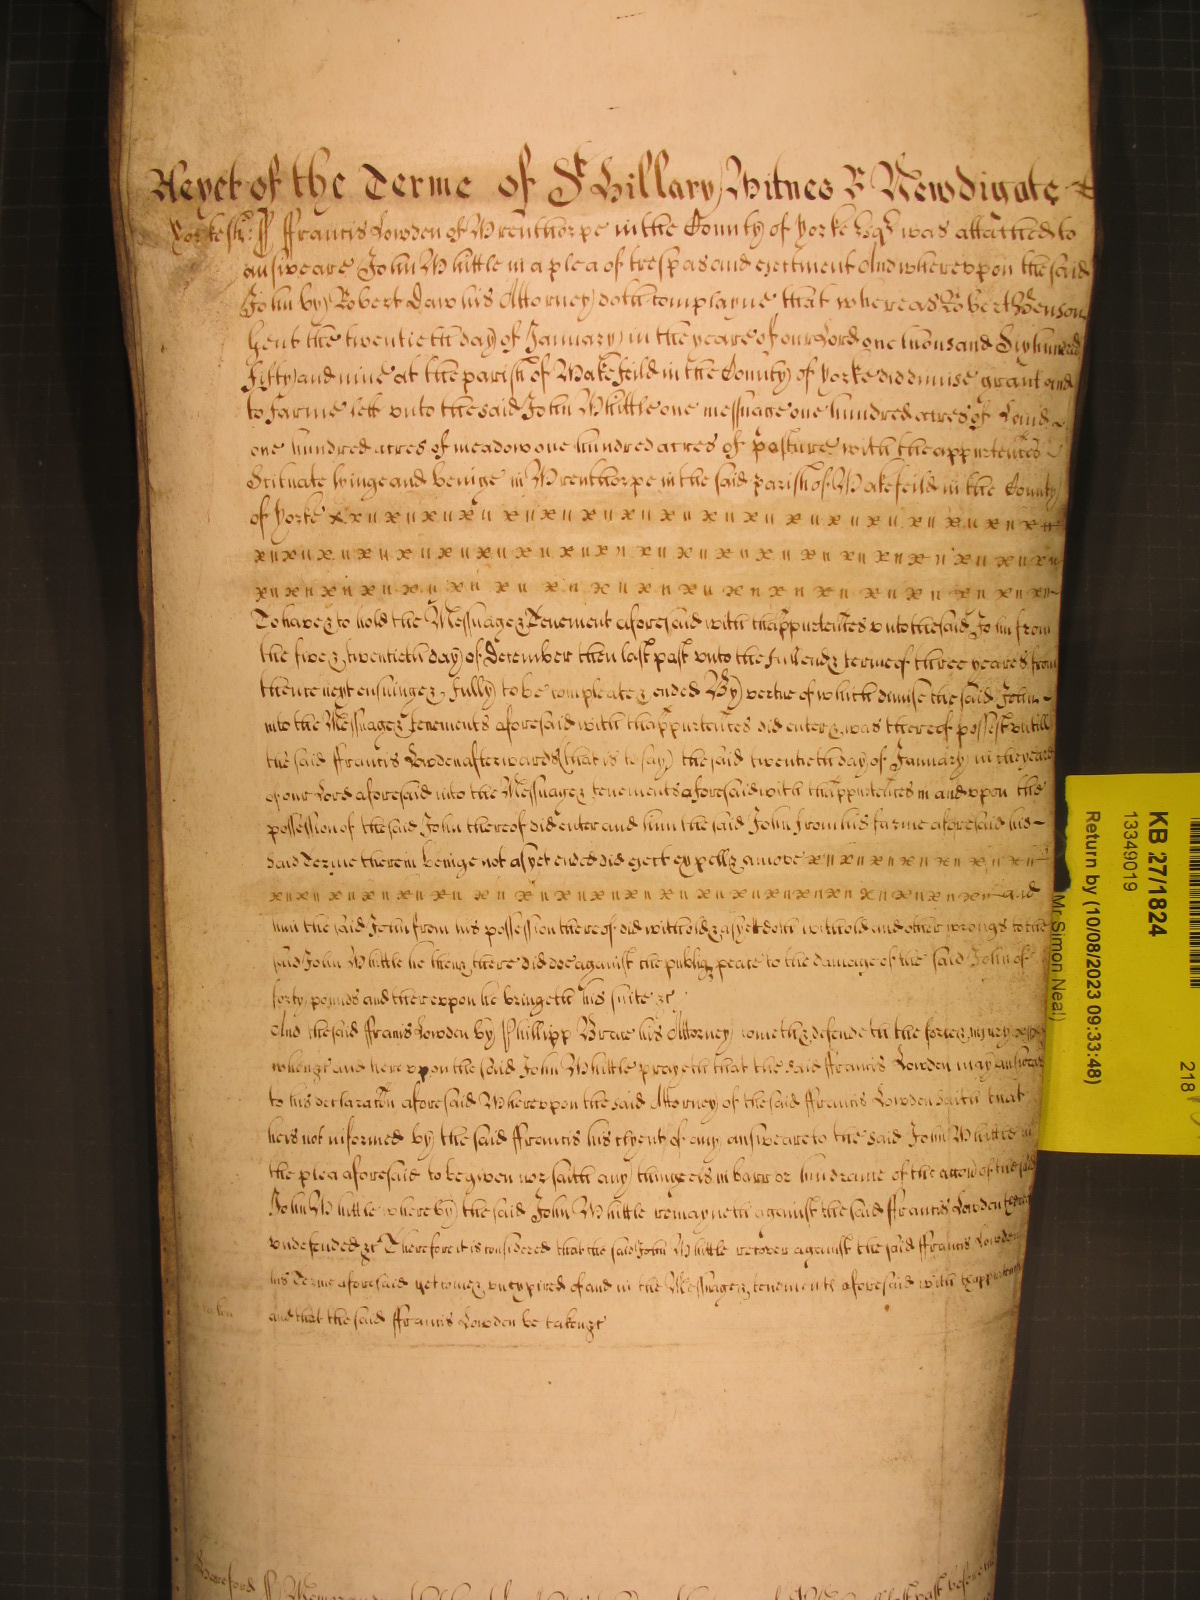 Yeyet of the Terme of St Hillary Witnes R Newdigate
Yorkesh: ss ffrancis Lowden of Wrenthorpe in the County of Yorke Esqr was attatched to
answeare John Whittle in a plea of trespas and eiectment And wherevpon the said
John by Robert Daw his Attorney doth complayne that whereas Robert Benson
gent the twentieth day of January in the yeare of our Lord one thousand Six hundred
Fifty and nine at the parish of Wakefeild in the County of Yorke did dimise grant and
to farme lett vnto the said John Whittle one messuage one hundred acres of Land
one hundred acres of meadow one hundred acres of pasture with the appurtences
Scituate lyinge and beinge in Wrenthorpe in the said parish of Wakefeild in the County
of Yorke
To have & to hold the Messuage & Tenement aforesaid with thappurtences vnto the said John from
the five & twentieth day of December then last past vnto the full end & terme of three yeares from
thence next ensuinge & fully to be compleate & ended By vertue of which dimise the said John
into the Messuage & tenements aforesaid with thappurtences did enter & was thereof possest vntill
the said ffrancis Lowden afterwards (that is to say) the said twentieth day of January in the yeare
of our Lord aforesaid into the Messuage & tenements aforesaid with thappurtences in and vpon the
possession of the said John thereof did enter and him the said John from his farme aforesaid his
said Terme therein beinge not as yet ended did eiect expell & amove
and
him the said John from his possession thereof did withold & as yet doth withold and other wrongs to the
said John Whittle he then & there did doe against the publiq peace to the damage of the said John of
forty pounds and therevpon he bringeth his suite &c
And the said ffrancis Lowden by Phillipp Breve his Attorney cometh & defendeth the force & iniury
when &c and herevpon the said John Whittle prayeth that the said ffrancis Lowden may answeare
to his declaracon aforesaid Wherevpon the said Attorney of the said ffrancis Lowden saith that
hee is not informed by the said ffrancis his clyent of any answeare to the said John Whittle in
the plea aforesaid to be given nor saith any thinge els in barr or hindrance of the accon of the said
John Whittle whereby the said John Whittle remayneth against the said ffrancis Lowden
vndefended &c Therefore it is considered that the said John Whittle recover against the said ffrancis Lowden
his Terme aforesaid yet to come & vnexpired of and in the Messuage & tenements aforesaid with thappurtences
and that the said ffrancis Lowden be taken &c
Hereford ss
KB 27/1824
13349019
Return by (10/08/2023 09:33:48)
Mr Simon Neal)
218